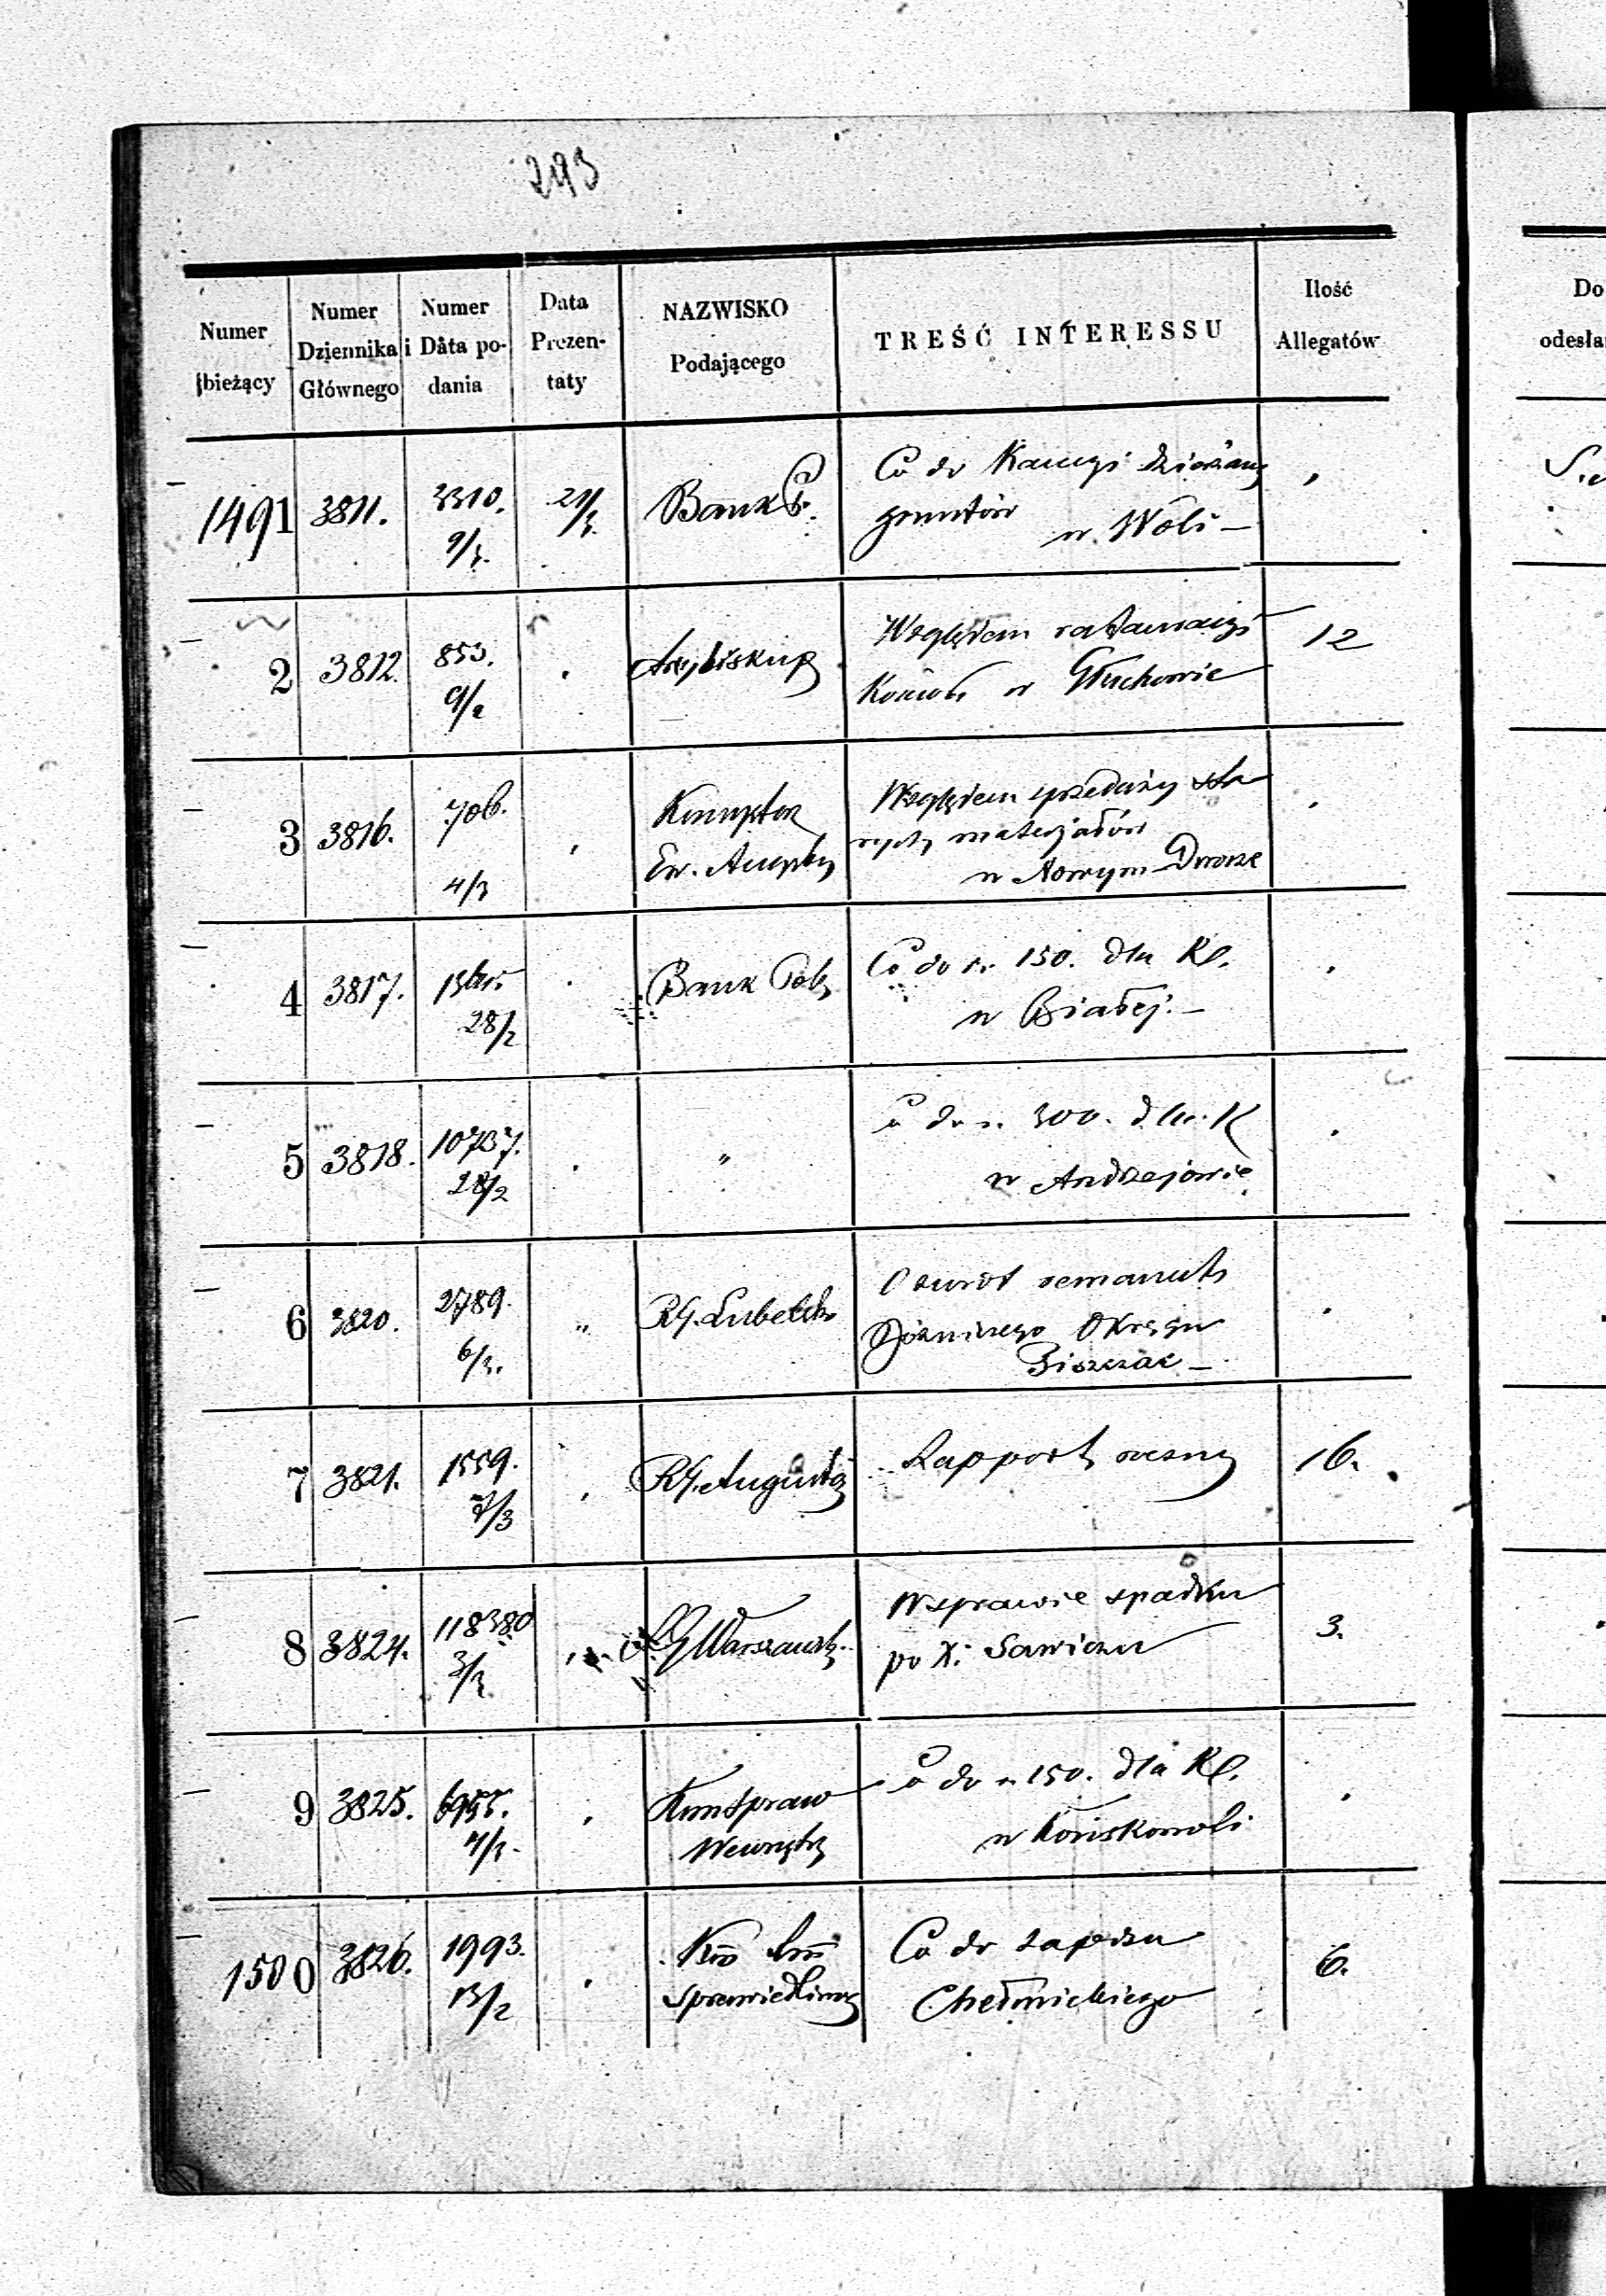 293
Numer bieżący | Numer Dziennika Głównego | Numer i Data podania | Data Prezentaty | NAZWISKO Podającego | TREŚĆ INTERESSU | Ilość Allegatów
Do
odesła
1491 3811. 3310. 9/3. 21/3. Bank P. Co do Kaucyi dzierżawy
gruntów
w Woli –
2 3812. 853. 9/2 Arcybiskup Względem
Kościoła w Głuchowie
12
3 3816. 706. 4/3 Względem sprzedaży sta
rych materjałów
w Nowym-Dworze
4 3817. 28/2 Bank Pols Co do r. 150. dla Kl.
w Białej. –
5 3818. 10737. 28/2 " Co do r. 300. dla K
w Andrzejowie
6 3820. 2789. 6/3. " RG. Lubelski O zwrot remanentu
Okręgu
Piszczac –
7 3821. 1559. 7/3 RG. Augusto Rapport roczny 16.
8 3824. 118380 3/3 RG Warszawsk. W sprawie spadku
po X. Sawiczu
3.
9 3825. 4/3. Kom Spraw
Wewnętrz
Co do r. 150. dla Kl.
w Końskowoli
1500 3826. 1993. 13/2
Sprawiedliwoś
Co do zapisu
Chełmickiego
6.